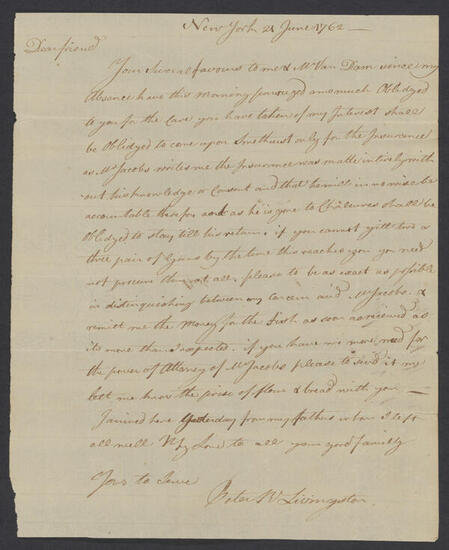 New York 21 June 1762
Dear friend
Your Several favours to me & Mr Van Dam since my
Absence have this Morning perused am much Obliged
to you for the Care you have taken of my Interest shall
be Oblidged to come upon Smethurst only for the Insurance
as Mr Jacobs writes me the Insurance was made intirely with
out his knowledge or Consent and that he will in no wise be
accountable therefor and as he is gone to shall be
Oblidged to stay till his return, if you cannot gitt two or
three pair of by the time this reaches you you need
not procure them at all, please to be as exact as possible
in distinguishing between my Concern and Mr Jacobs. &
remitt me the Money for the fish as soon as received as
its more than I expected. if you have no more need for
the power of Attorney of Mr Jacobs please to send it me
lett me know the price of flour & bread with you
I arrived here Yesterday from my fathers whom I left
all well My Love to all your good family
Yors to Serve
Peter W Livingston